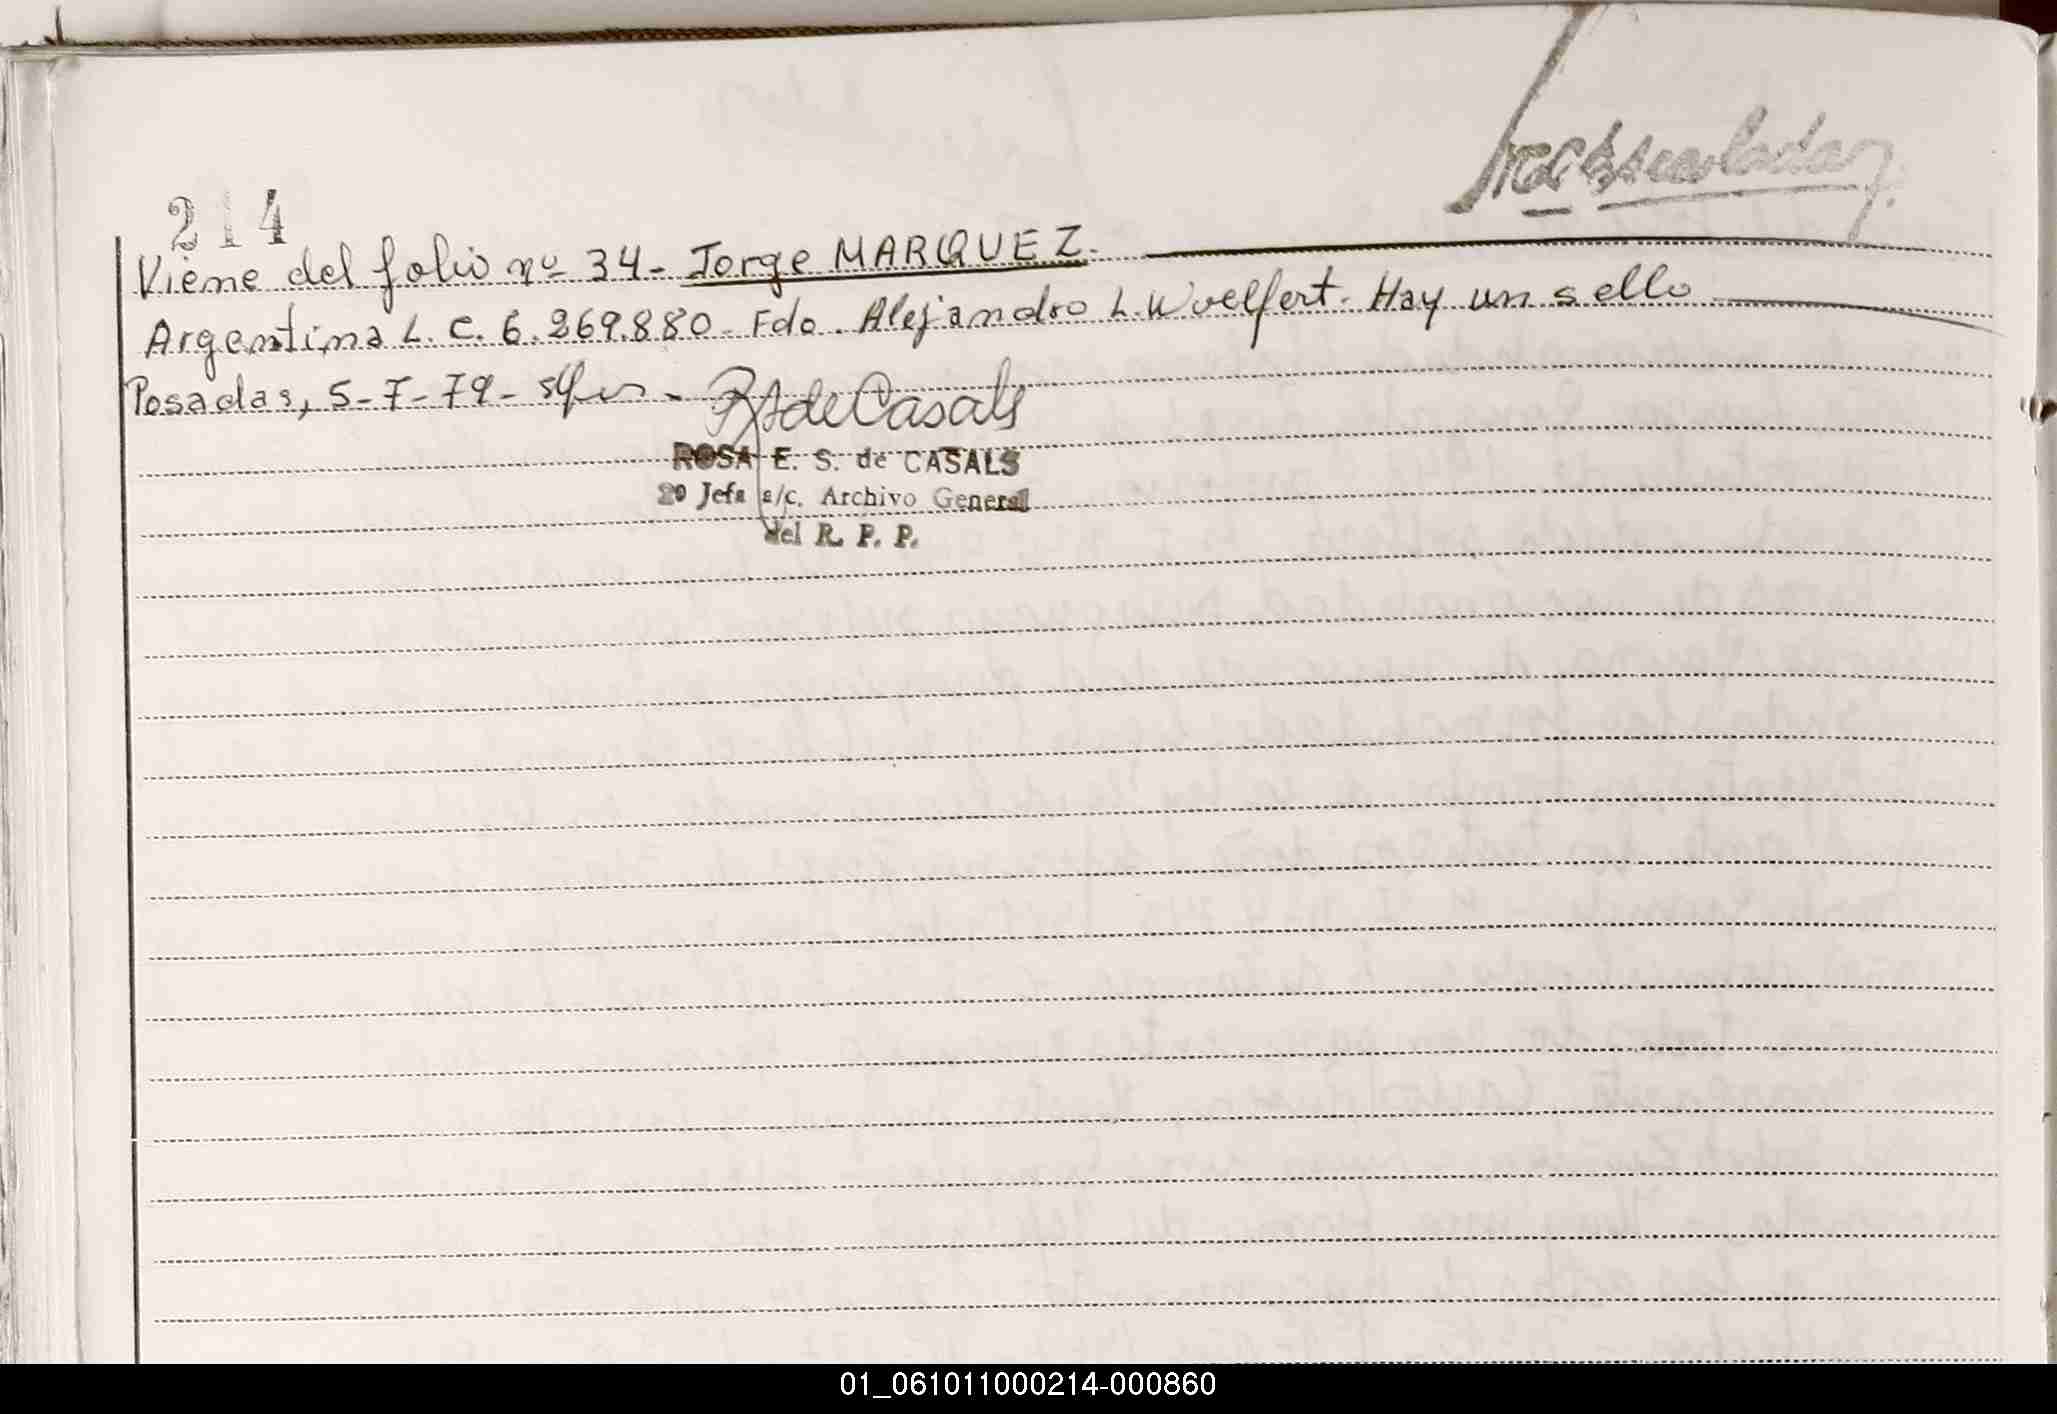 214
Viene del folio nº 34- Jorge MARQUEZ.
Argentina L. C. 6.269.880- Fdo. Alejandro L. Woelfert. Hay un sello
Posadas, 5-7-79-
de Casals
ROSA E. S. de CASALS
2º Jefa a/c. Archivo General
del R. P. P.
01_061011000214-000860